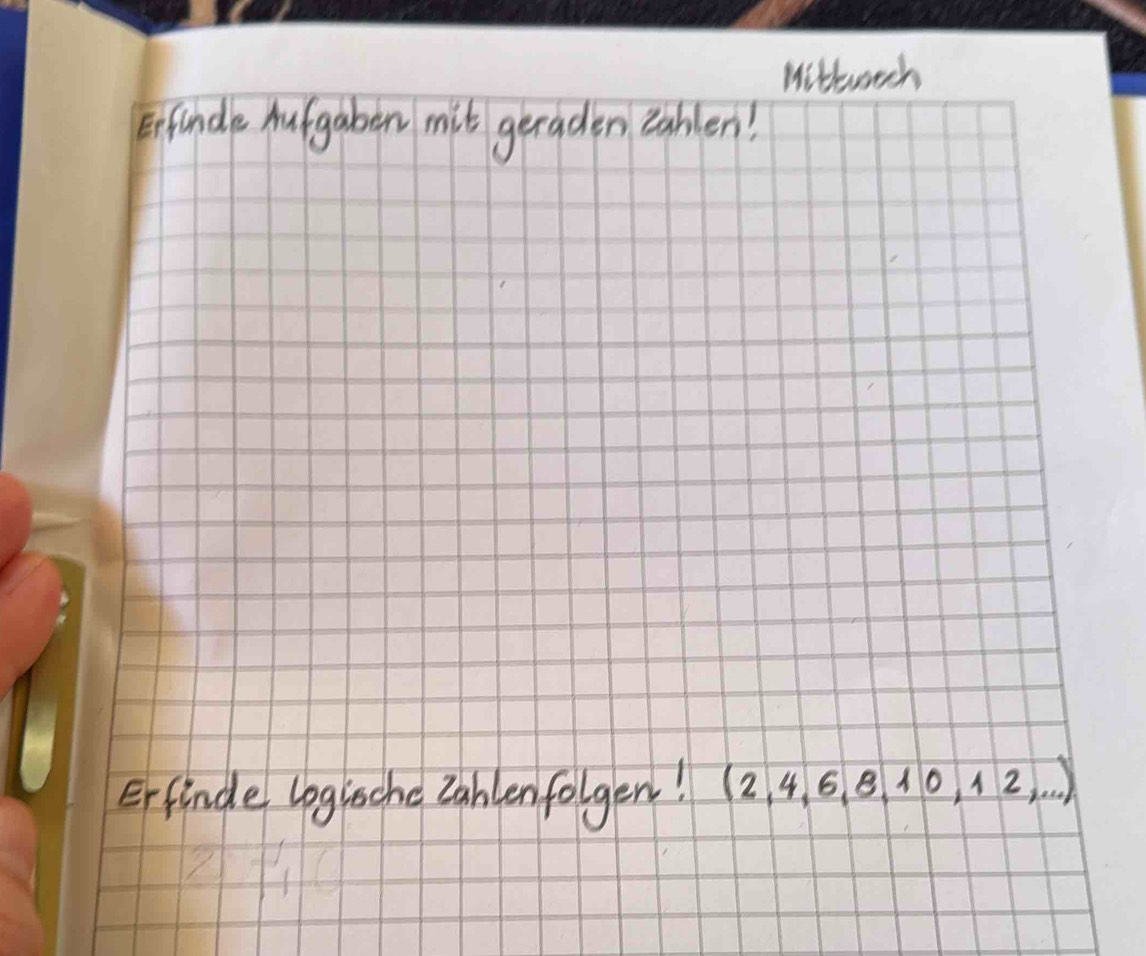 Mittwoch
Erfinde Aufgaben mit geraden Zahlen!
Erfinde logische Zahlenfolgen! (2,4,6,8,10,12,...)